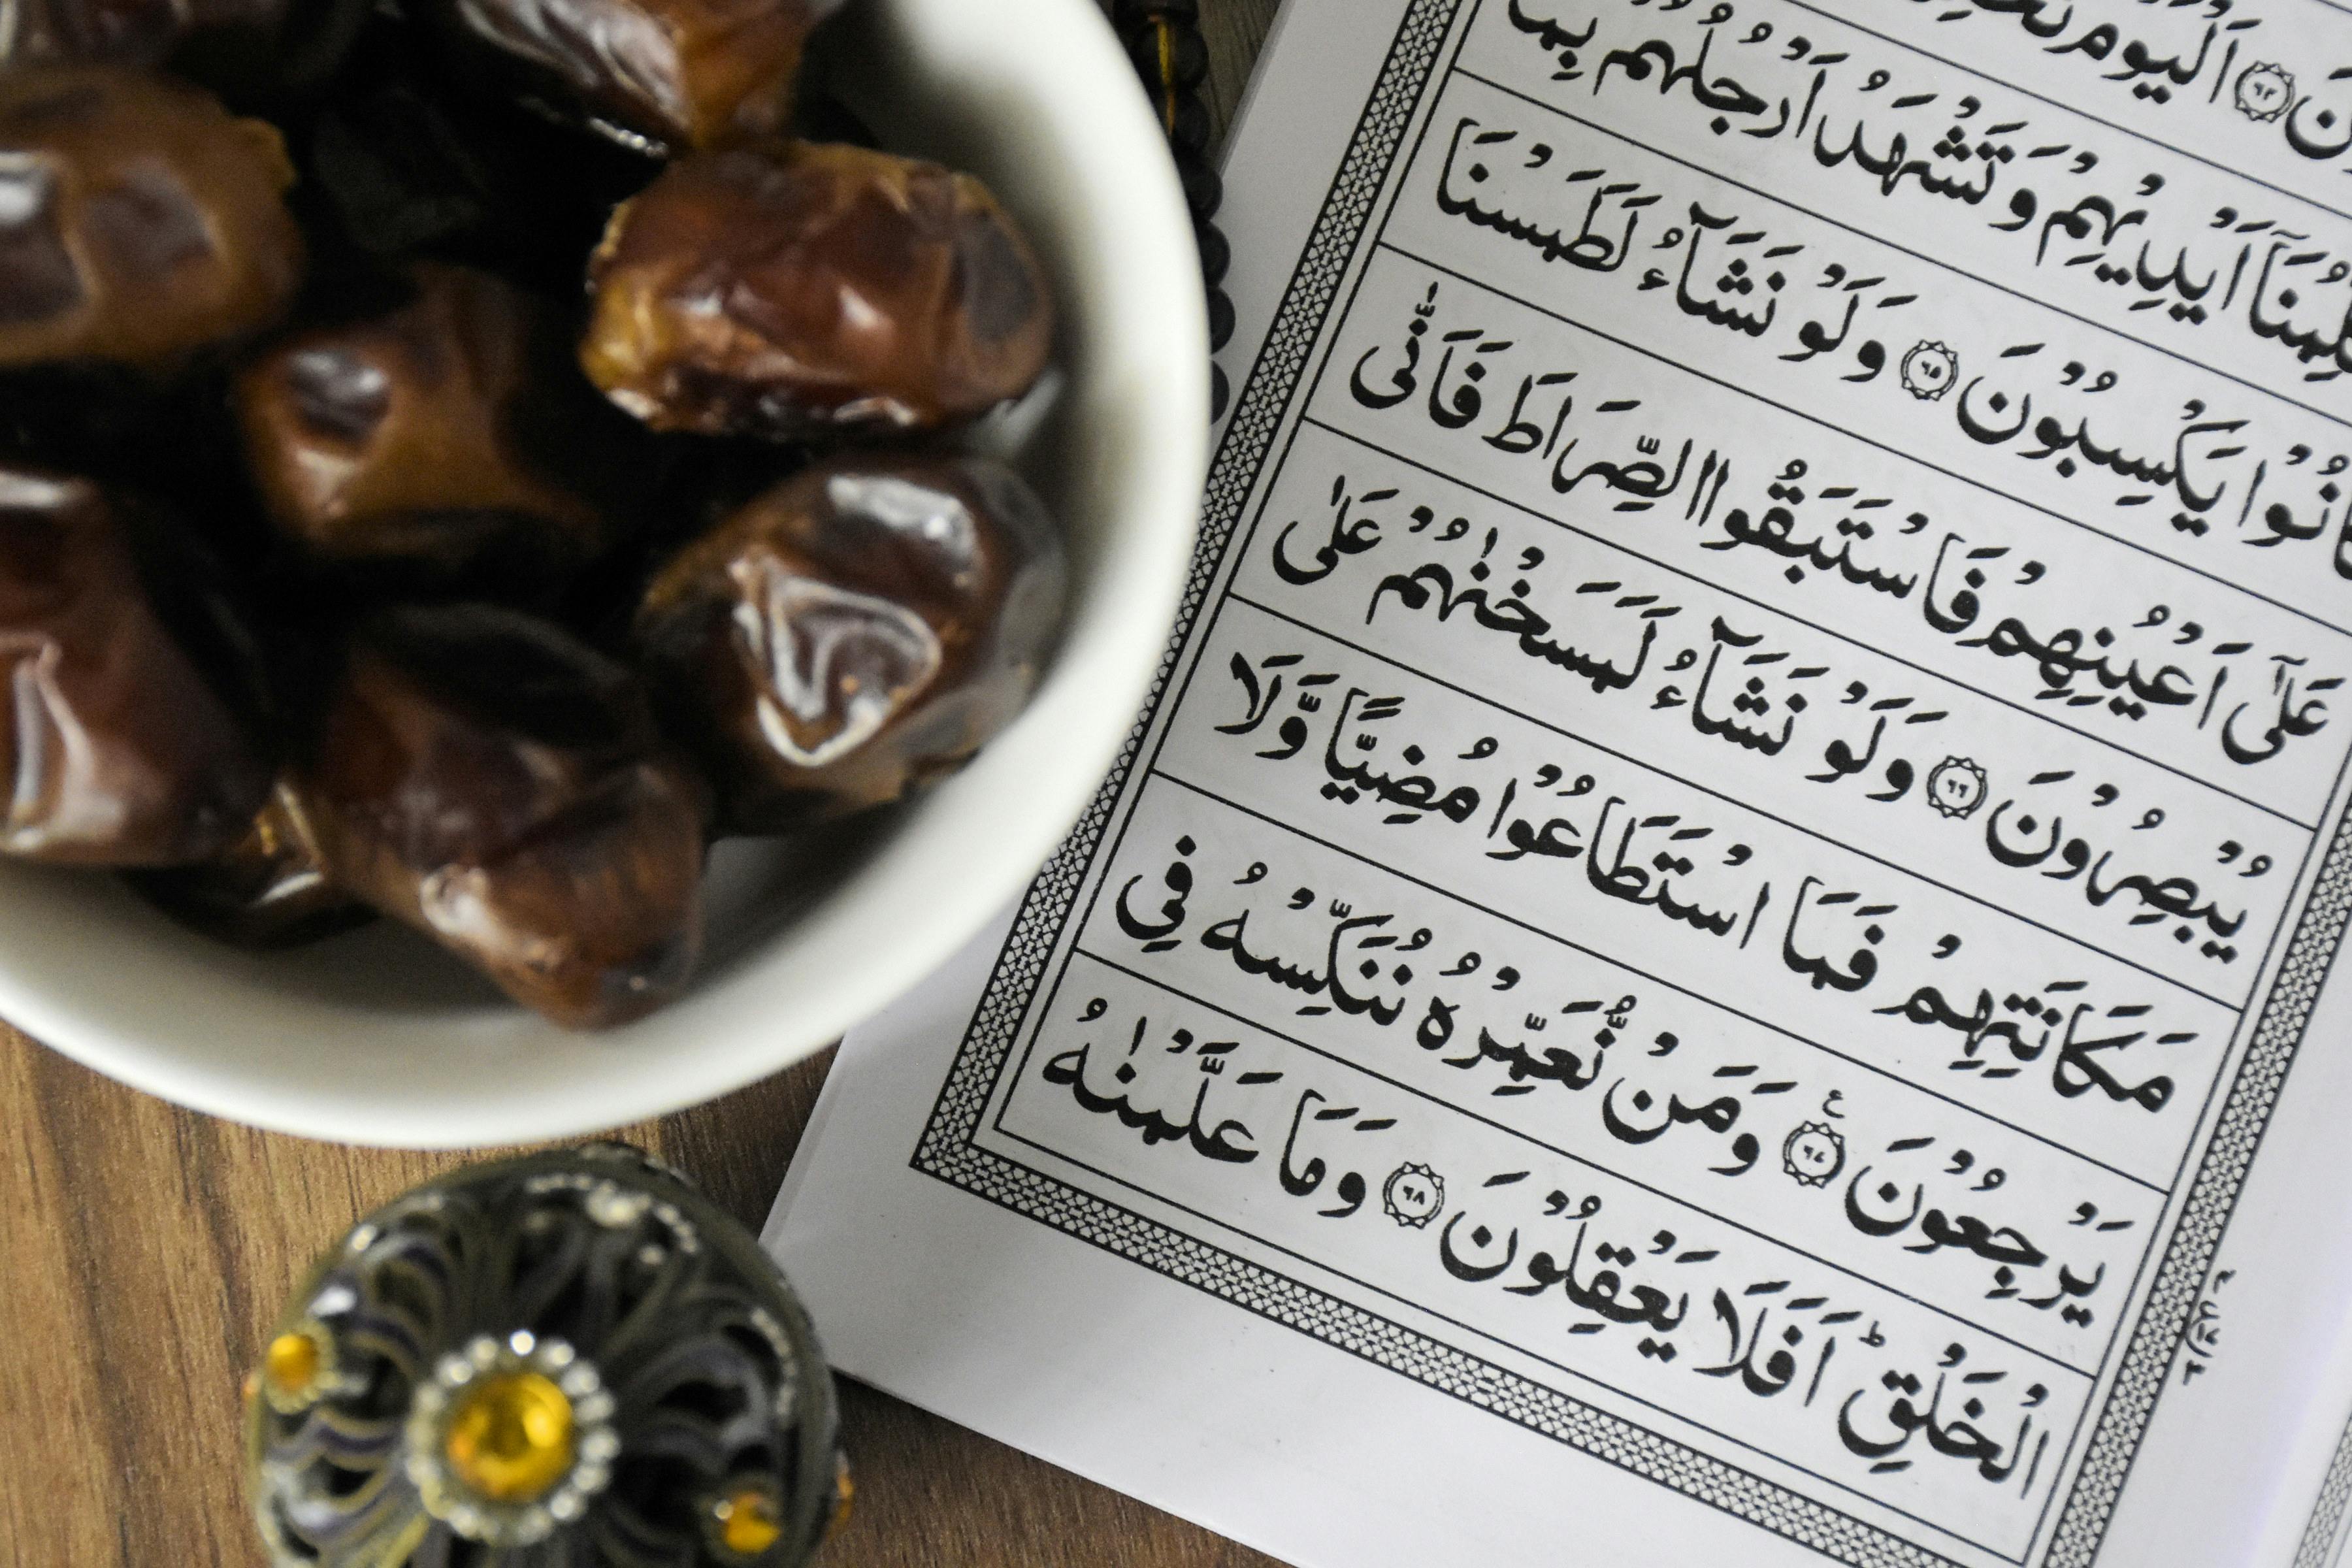 اَلْيَوْمَ
اَيْدِيْهِمْ وَتَشْهَدُ اَرْجُلُهُمْ بِمَا
يَكْسِبُوْنَ ۝٦٥ وَلَوْ نَشَآءُ لَطَمَسْنَا
عَلٰٓى اَعْيُنِهِمْ فَاسْتَبَقُوا الصِّرَاطَ فَاَنّٰى
يُبْصِرُوْنَ ۝٦٦ وَلَوْ نَشَآءُ لَمَسَخْنٰهُمْ عَلٰى
مَكَانَتِهِمْ فَمَا اسْتَطَاعُوْا مُضِيًّا وَّلَا
يَرْجِعُوْنَ ۝٦٧ ع وَمَنْ نُّعَمِّرْهُ نُنَكِّسْهُ فِى
الْخَلْقِ ؕ اَفَلَا يَعْقِلُوْنَ ۝٦٨ وَمَا عَلَّمْنٰهُ